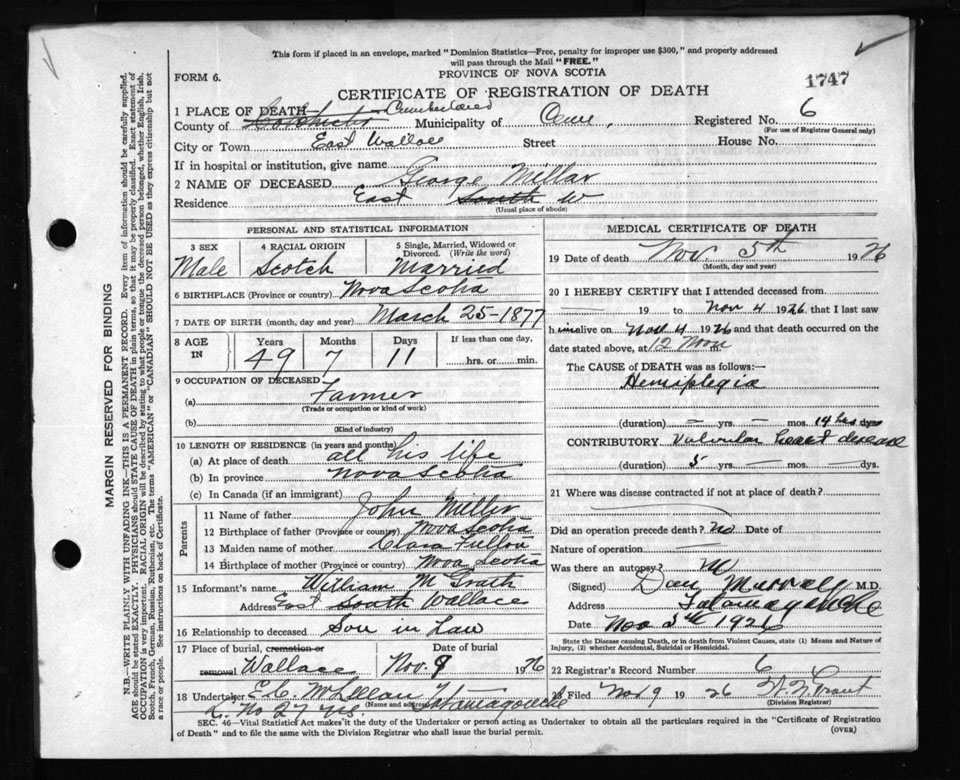 This form if placed in an envelope, marked "Dominion Statistics—Free, penalty for improper use $300," and properly addressed
will pass through the Mail "FREE."
FORM 6.
PROVINCE OF NOVA SCOTIA
1747
CERTIFICATE OF REGISTRATION OF DEATH
1 PLACE OF DEATH
County of Colchester Cumberland Municipality of Registered No. 6
(For use of Registrar General only)
City or Town East Wallace Street House No.
If in hospital or institution, give name
2 NAME OF DECEASED George Millar
Residence East South W
(Usual place of abode)
PERSONAL AND STATISTICAL INFORMATION
3 SEX Male
4 RACIAL ORIGIN Scotch
5 Single, Married, Widowed or Divorced. (Write the word) Married
6 BIRTHPLACE (Province or country) Nova Scotia
7 DATE OF BIRTH (month, day and year) March 25-1877
8 AGE IN Years 49 Months 7 Days 11 If less than one day, hrs. or min.
9 OCCUPATION OF DECEASED
(a) Farmer
(Trade or occupation or kind of work)
(b)
(Kind of industry)
10 LENGTH OF RESIDENCE (in years and months)
(a) At place of death all his life
(b) In province Nova Scotia
(c) In Canada (if an immigrant)
Parents
11 Name of father John Miller
12 Birthplace of father (Province or country) Nova Scotia
13 Maiden name of mother Clara Fulton
14 Birthplace of mother (Province or country) Nova Scotia
15 Informant's name William McGrath
Address East South Wallace
16 Relationship to deceased Son in Law
17 Place of burial, cremation or removal Wallace
Date of burial Nov. 8 1926
18 Undertaker McLellan Tatamagouche
(Name and address)
L. No 27
MEDICAL CERTIFICATE OF DEATH
19 Date of death Nov. 5th 1926
(Month, day and year)
20 I HEREBY CERTIFY that I attended deceased from
— 19 to Nov 4 1926 that I last saw
him alive on Nov 4 1926 and that death occurred on the
date stated above, at 12 Noon m.
The CAUSE of DEATH was as follows:—
Hemiplegia
(duration) — yrs. — mos. 14 hrs dys
CONTRIBUTORY Valvular heart disease
(duration) 5 yrs. — mos. — dys.
21 Where was disease contracted if not at place of death?
Did an operation precede death? no Date of
Nature of operation —
Was there an autopsy? no
(Signed) Dan Murray M.D.
Address Tatamagouche
Date Nov 1926
State the Disease causing Death, or in death from Violent Causes, state (1) Means and Nature of
Injury, (2) whether Accidental, Suicidal or Homicidal.
22 Registrar's Record Number 6
23 Filed Nov 9 1926
(Division Registrar)
SEC. 46—Vital Statistics Act makes it the duty of the Undertaker or person acting as Undertaker to obtain all the particulars required in the "Certificate of Registration
of Death" and to file the same with the Division Registrar who shall issue the burial permit.
(OVER)
MARGIN RESERVED FOR BINDING
N.B.—WRITE PLAINLY WITH UNFADING INK—THIS IS A PERMANENT RECORD. Every item of information should be carefully supplied.
AGE should be stated EXACTLY. PHYSICIANS should STATE CAUSE OF DEATH in plain terms, so that it may be properly classified. Exact statement of
OCCUPATION is very important. RACIAL ORIGIN will be described by stating to what people or tongue the deceased person belonged, whether English, Irish,
Scotch, French, German, Russian, Ruthenian, etc. The terms "AMERICAN" or "CANADIAN" SHOULD NOT BE USED as they express citizenship but not
a race or people. See instructions on back of Certificate.